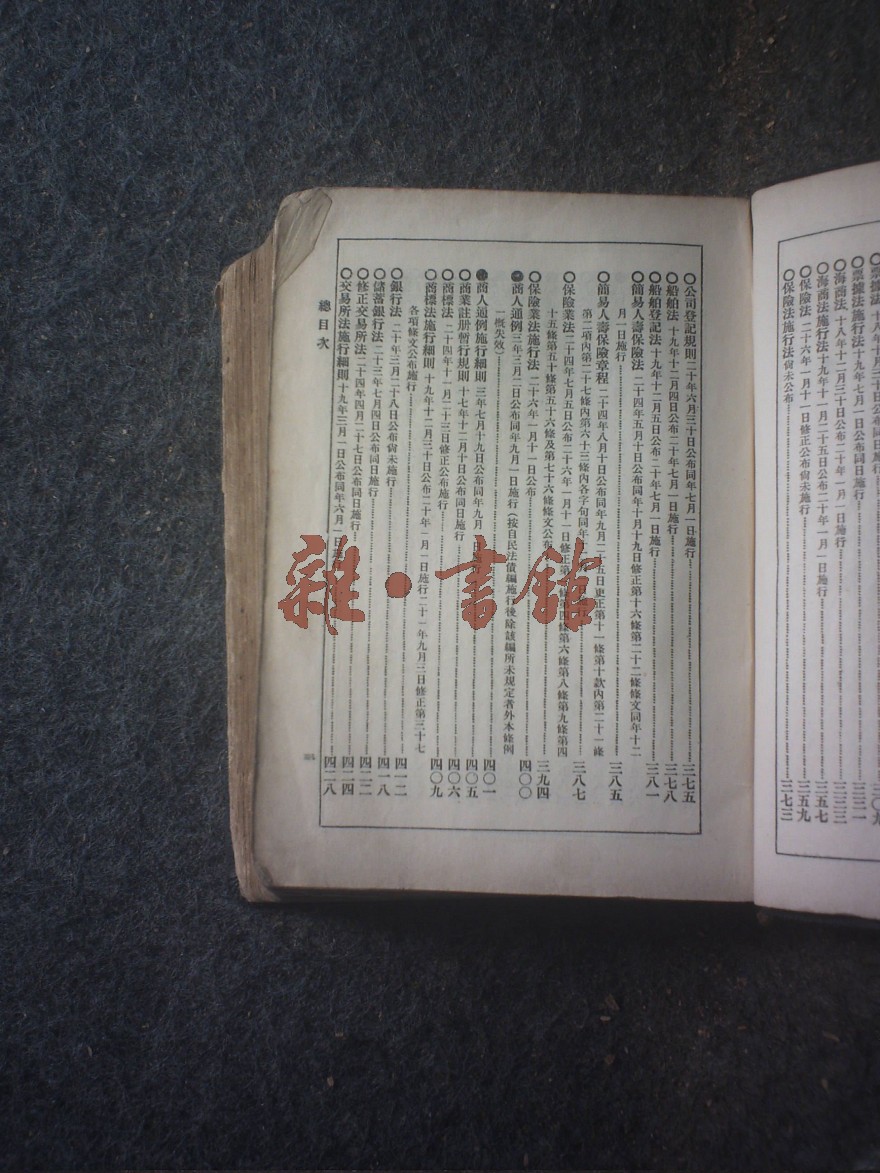 票據法施行法十九年七月一日公布同日施行……三三一
海商法 十八年十二月三十日公布二十年一月一日施行……三三三
海商法施行法十九年十一月二十五日公布二十年一月一日施行……三五七
○保險法 二十六年一月十一日修正公布尚未施行……三五九
○保險法施行法 尚未公布……三七三
○公司登記規則 二十年六月三十日公布同年七月一日施行……三七五
○船舶法 十九年十二月四日公布二十年七月一日施行……三七八
○船舶登記法 十九年十二月五日公布二十年七月一日施行……三八一
○簡易人壽保險法 二十四年五月十日公布同年十月十九日修正第十六條第二十二條條文同年十二
月一日施行……三八五
○簡易人壽保險章程 二十四年八月十日公布同年九月二十五日更正第十一條第十款內第二十一條
第二項內第二十七條內第六十三條內各字句同年……施行……三八七
○保險業法 二十四年七月五日公布二十六年一月十一日修正第 條第四條第六條第八條第九條第四
十五條第五十條第五十六條及第七十六條條文公布……三九四
○保險業法施行法 二十六年一月十一日公布……四〇〇
商人通例 三年三月二日公布同年九月一日施行(按自民法債編施行後除該編所未規定者外本條例
一概失效)……四〇一
商人通例施行細則 三年七月十九日公布同年九月 日施行……四〇五
○商業註册暫行規則 十七年十二月十日公布同日施行……四〇六
○商標法 二十四年十一月二十三日修正公布施行……四〇九
○商標法施行細則 十九年十二月三十日公布二十年一月一日施行二十一年九月三日修正第三十七
各項條文公布施行……四一二
○銀行法 二十年三月二十八日公布尚未施行……四一八
○儲蓄銀行法 二十三年七月四日公布同日施行……四二二
○修正交易所法 二十四年四月二十七日公布同日施行……四二四
○交易所法施行細則 十九年三月一日公布同年六月一日施……四二八
總目次
雜·書館